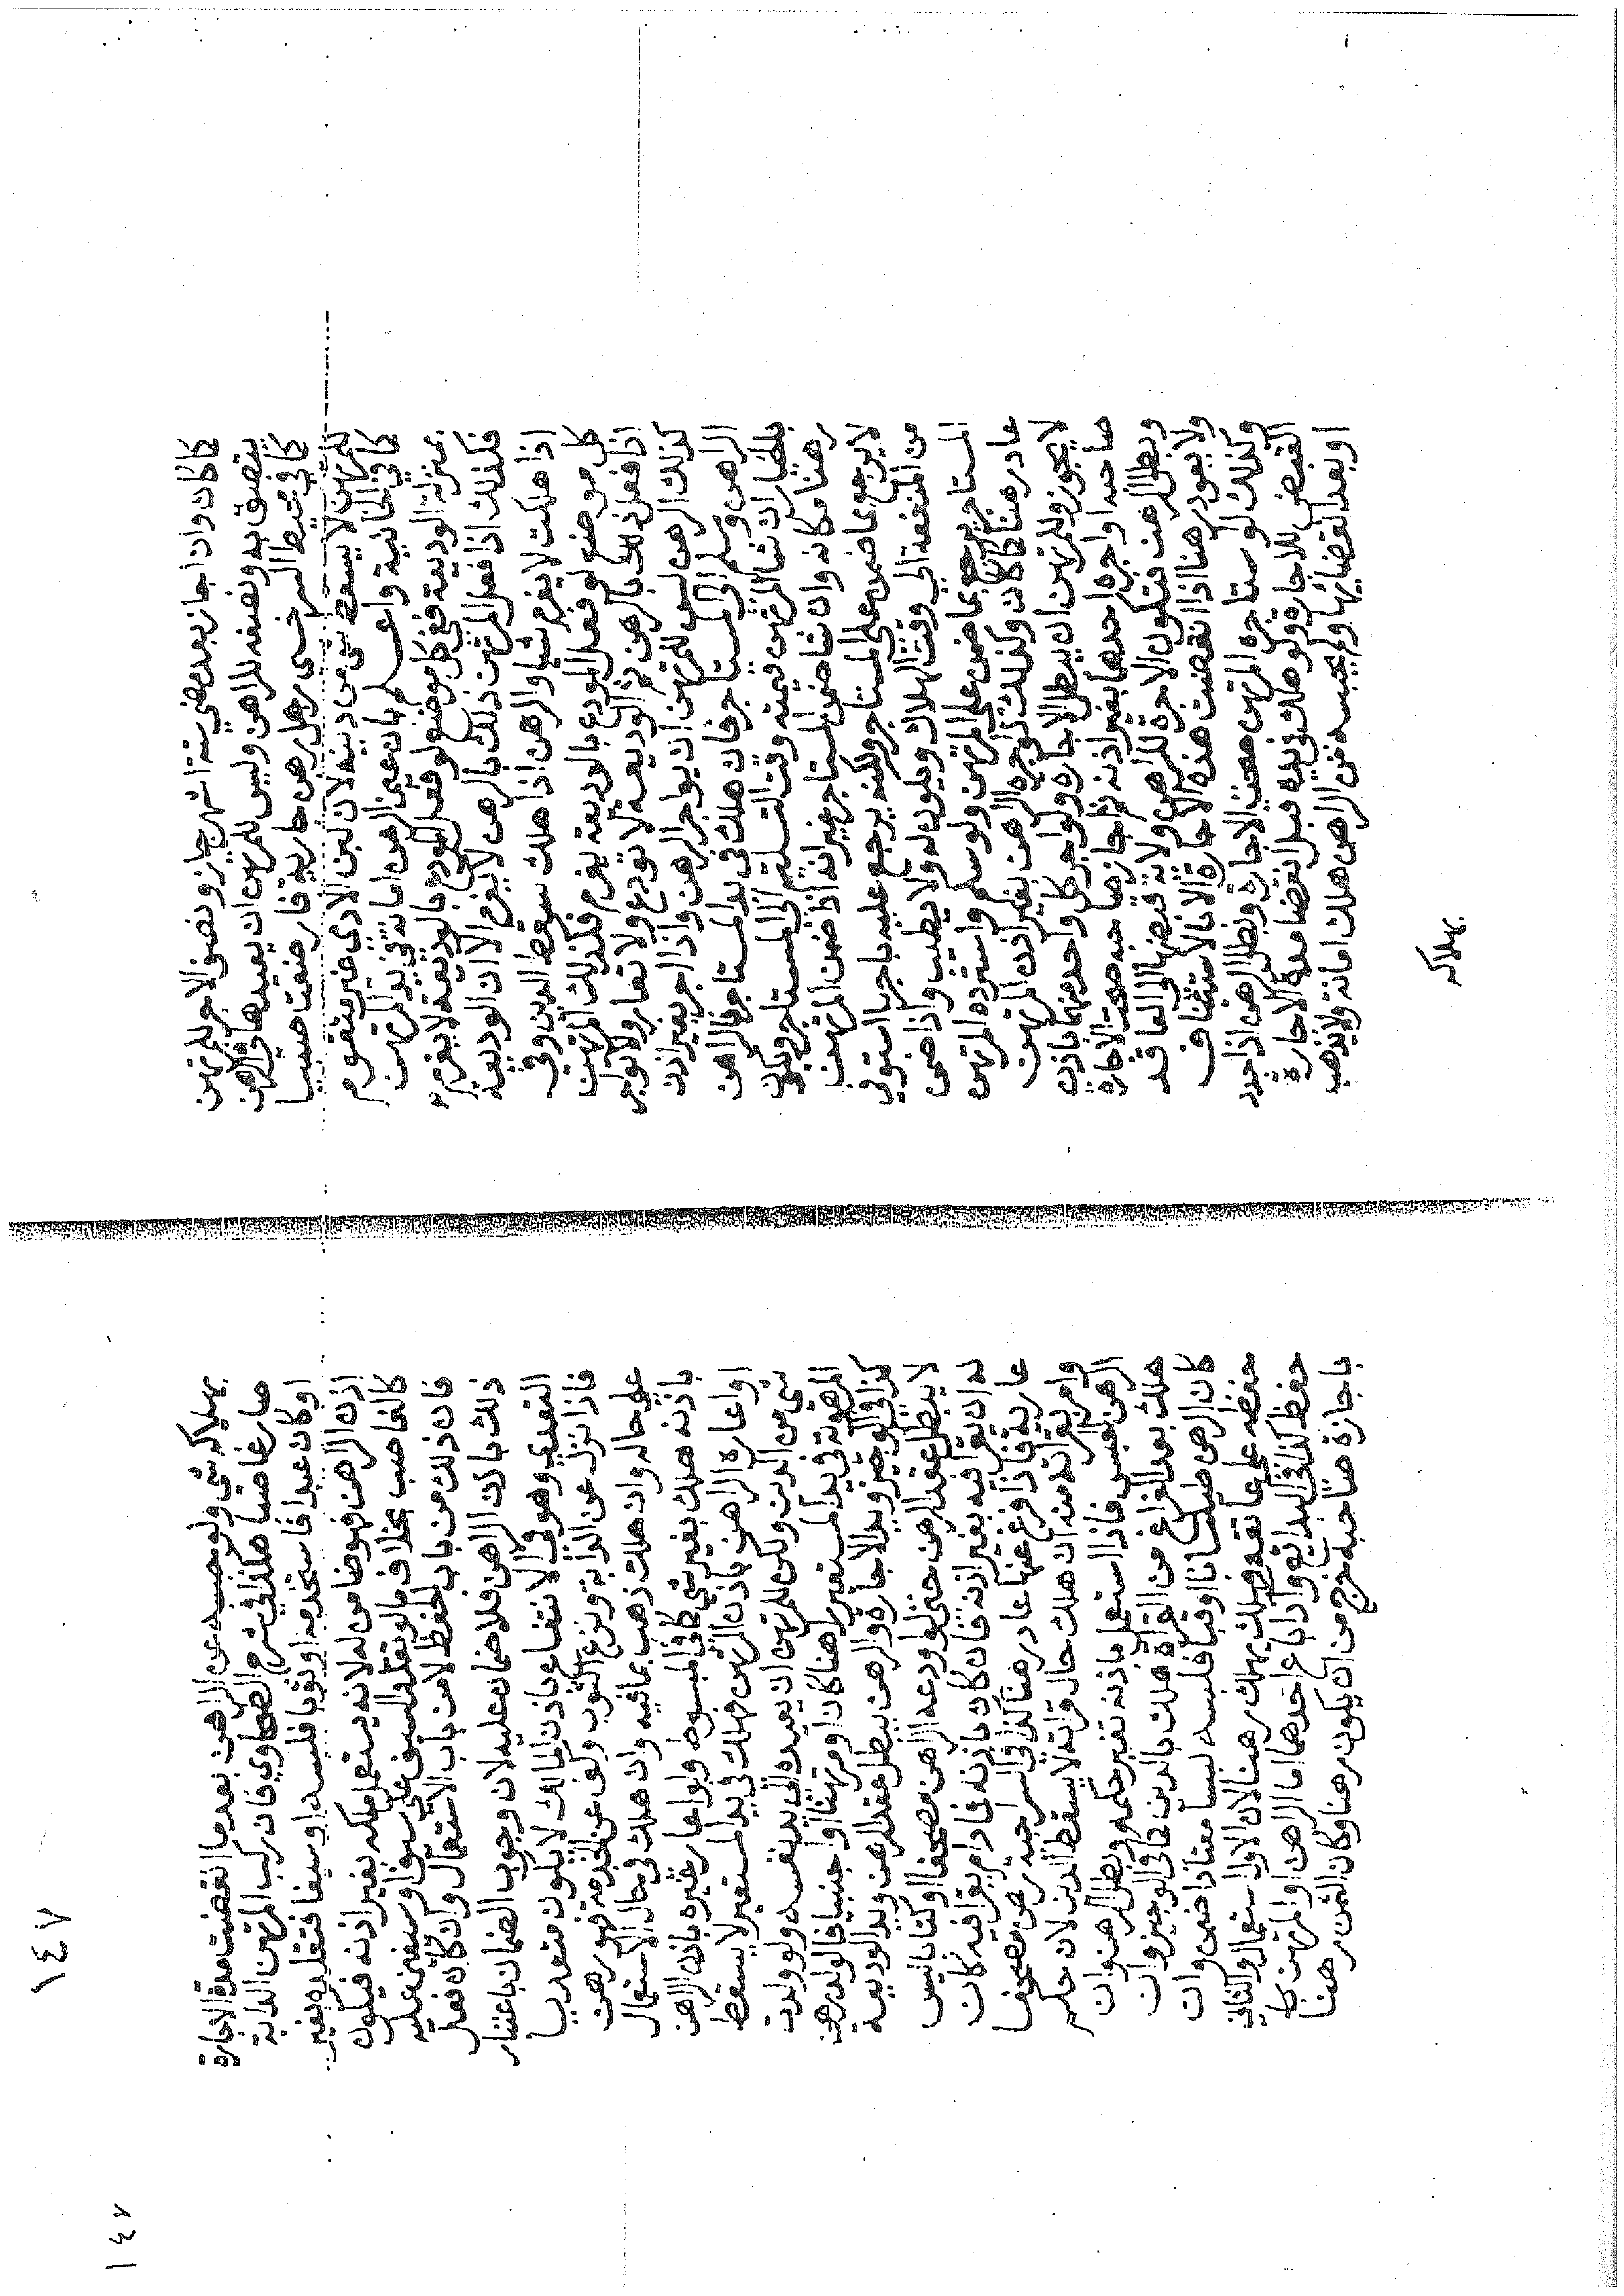 كما كان وان اجاز بعد مضي ستة اشهر جاز ونصف الاجر للمرتهن
يتصدق به ونصفه للراهن وليس للمرتهن ان يعيدها في الرهن
كما في محيط السرخسي رجل رهن جارية فارضعت صبيا
للمرتهن لا يسقط شي من دينه لان لبن الادمي غير متقوم
كما في الخانية واعلم بان عين الرهن امانة في يد المرتهن
بمنزلة الوديعة ففي كل موضع لو فعل المودع بالوديعة لا يغرم
فكذلك اذا فعل المرتهن ذلك بالرهن لا يغرم الا ان الوديعة
اذا هلكت لا يغرم شيا والرهن اذا هلك سقط الدين وفي
كل موضع لو فعل المودع بالوديعة يغرم فكذلك المرتهن
اذا فعل ذلك بالرهن ثم الوديعة لا تودع ولا تعار ولا تواجر
كذلك الرهن ليس للمرتهن ان يواجر الرهن واذا اجر بغير اذن
الراهن وسلم الى المستاجر فان هلك في يد المستاجر فالراهن
بالخيار ان شا ضمن المرتهن قيمته وقت التسليم الى المستاجر ويكون
رهنا مكانه وان شا ضمن المستاجر غير انه اذا ضمن المرتهن
لا يرجع بما ضمن على المستاجر ولكنه يرجع عليه باجر ما استوفي
من المنفعة الى وقت الهلاك ويكون له ولا يطيب واذا ضمن
المستاجر يرجع بما ضمن على المرتهن ولو سلم واسترده المرتهن
عاد رهنا كما كان وكذلك لو اجره الراهن بغير اذن المرتهن
لا يجوز وللمرتهن ان يبطل الاجارة ولو اجر كل واحد منهما باذن
صاحبه او اجره احدهما بغير اذنه ثم اجاز صاحبه صحت الاجارة
وبطل الرهن فتكون الاجرة للراهن وولاية قبضها الى العاقد
ولا يعود رهنا اذا انقضت هذه الاجارة الا بالاستئناف
وكذلك لو استاجره المرتهن صحت الاجارة وبطل الرهن اذا جدد
القبض للاجارة ولو هلك في يده قبل انقضا مدة الاجارة
او بعد انقضائها ولم يحبسه عن الراهن هلك امانة ولا يذهب
بهلاكه
١٤٧
١٤٧
بهلاكه شي ولو حبسه عن الراهن بعد ما انقضت مدة الاجارة
صار غاصبا هكذا في شرح الطحاوي فان ركب المرتهن الدابة
او كان عبدا فاستخدمه او ثوبا فلبسه او سيفا فتقلده بغير
اذن الراهن فهو ضامن له لانه يستعمل ملكه بغير اذنه فيكون
كالغاصب بخلاف ما لو تقلد السيف على سيف او سيفين عليه
فان ذلك من باب الحفظ لا من باب الاستعمال وان كان فعل
ذلك باذن الراهن فلا ضمان عليه لان وجوب الضمان باعتبار
التعدي وهو في الانتفاع باذن المالك لا يكون متعديا
فاذا نزل عن الدابة ونزع الثوب وكف عن الخدمة فهو رهن
على حاله وان هلك ذهب بما فيه وان هلك في حال الاستعمال
باذنه هلك بغير شي كما في المبسوط ولو اعار غيره باذن الراهن
او اعاره الراهن باذن المرتهن فهلك في يد المستعير لا يسقط
شي من الدين ولكن للمرتهن ان يعيده الى يد نفسه ولو ولدت
المرهونة في يد المستعير راهنا كان او مرتهنا او اجنبيا فالولد رهن
كذا في الوجيز ويد الاجارة والرهن يبطل عقد الرهن ويد الوديعة
لا يبطل عقد الرهن حتى لو اودعه الراهن مصحفا او كتابا ليس
له ان يقرا فيه بغير اذنه فان كان باذنه فما دام يقرا فيه كان
عارية فاذا فرغ عنها عاد رهنا كذا في السراجية رهن مصحفا
وامر بقراته منه ان هلك حال قراته لا يسقط الدين لان حكم
الرهن الحبس فاذا استعمل باذنه تغير حكمه وبطل الرهن وان
هلك بعد الفراغ من القراة هلك بالدين كما في الوجيز وان
كان الرهن طيلسانا او قبا فلبسه لبسا معتادا ضمن وان
حفظه على عاتقه فهلك يهلك رهنا لان الاول استعمال والثاني
حفظ كذا في البدائع واذا باع احدهما اما الراهن او المرتهن
باجازة صاحبه خرج من ان يكون رهنا وكان الثمن رهنا